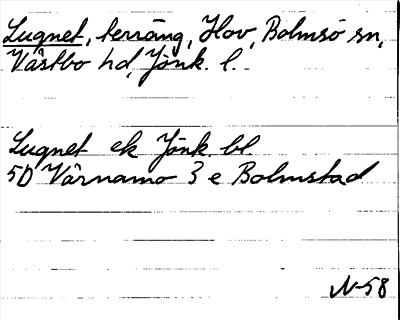 Lugnet, terräng, Hov, Bolmsö sn,
Västbo hd, Jönk. l.
Lugnet ek Jönk. bl.
5D Värnamo 3 e Bolmstad
N-58